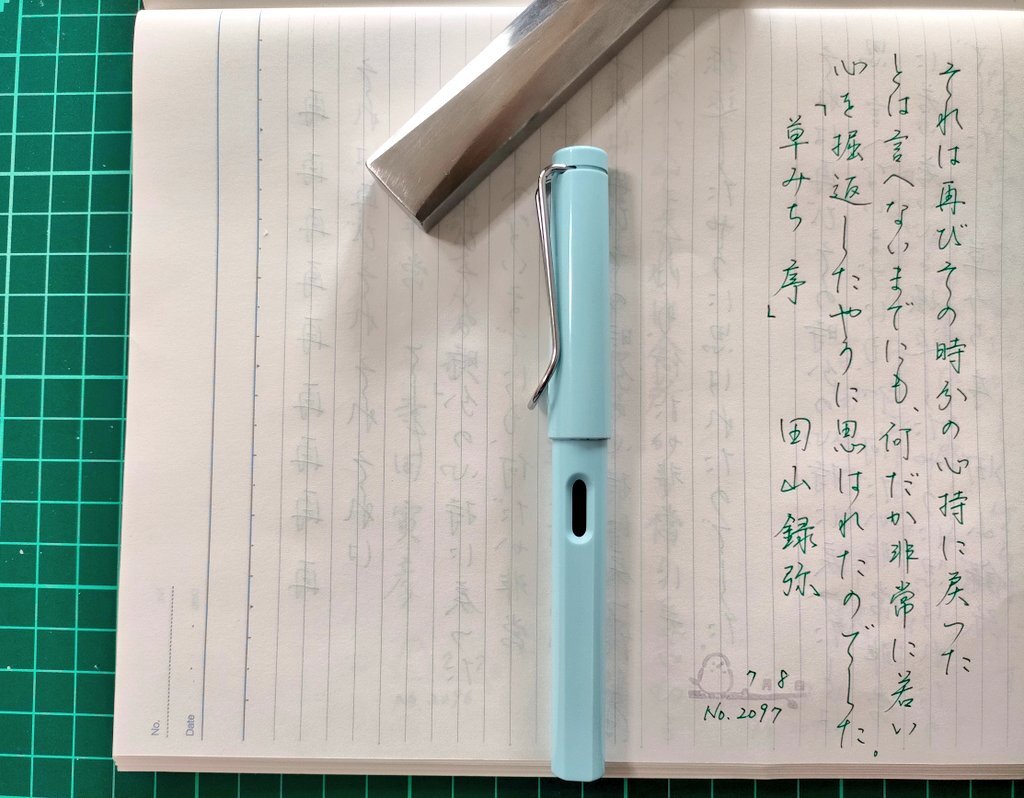 それは再びその時分の心持に戻った
とは言へないまでにも、何だか非常に若い
心を掘返したやうに思はれたのでした。
「草みち 序」 田山録弥
7月8日
No.2097
No.
Date